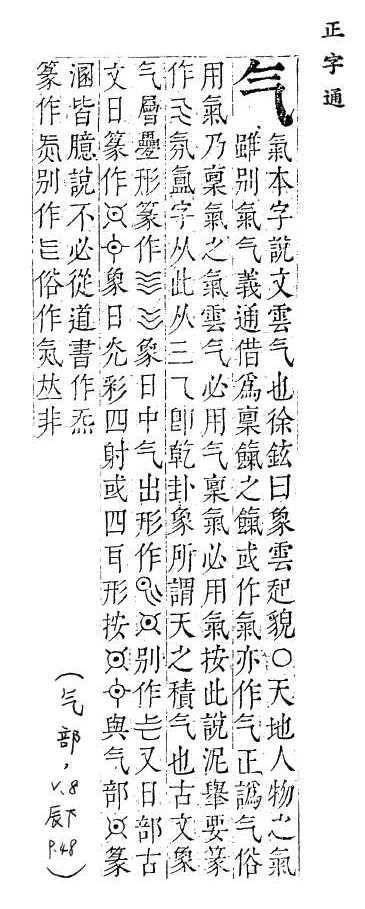 正字通
气
氣本字說文雲气也徐鉉曰象雲起貌○天地人物之氣
雖別氣气義通借爲稟餼之餼或作氣亦作气正譌气俗
用氣乃稟氣之氣雲气必用气稟氣必用氣按此說泥舉要篆
作氛氳字从此从三乁卽乾卦象所謂天之積气也古文象
气層疊形篆作象日中气出形作別作又日部古
文日篆作象日光彩四射或四耳形按與气部篆
溷皆臆說不必從道書作炁
篆作別作俗作非
(气部, v.8 辰下 p.48)